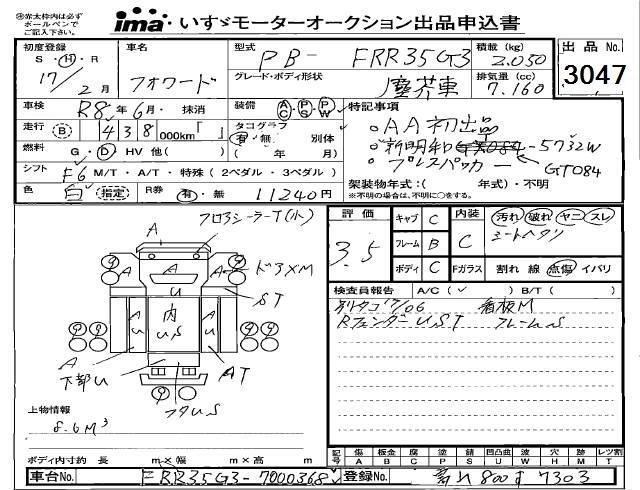 ※赤太枠内は必ず
ボールペンで
ご記入下さい。
ima いすゞモーターオークション出品申込書
出品No.
3047
初度登録 S・H・R 17/2月
車名 フォワード
型式 PB- FRR35G3
積載(kg) 2.050
グレード・ボディ形状 塵芥車
排気量(cc) 7.160
車検 R8年6月・抹消
装備 AC PS PW
特記事項
走行 B 438 000km「 」
タコグラフ 有・無 別体 ( 年 月)
・AA初出品
燃料 G・D HV 他( )
・新明和 -5732W
GT084
シフト F6 M/T・A/T・特殊(2ペダル・3ペダル)
・プレスパッカー
架装物年式:( 年式)・不明
※不明の場合は、不明に○をする。
色 白 指定 R券 有・無 11240円
フロアシーラーT(小)
評価 3.5
キャブ C
フレーム B
ボディ C
内装 C
汚れ 破れ ヤニ スレ
シートヘタリ
Fガラス 割れ 線 点傷 イバリ
検査員報告 A/C(✓) B/T( )
別タコ'7/06 看板M
RフェンダーUST フレームS
A
ドアXM
ST
内
US
AT
下部U
フタUS
上物情報
8.6M³
ボディ内寸約 長 m×幅 m×高 m
記号 傷A 板金B 腐C 塗P 錆S 凹凸曲U 波W 穴H 欠M レツ割T
車台No. FRR35G3-7000368
登録No. 800す7303